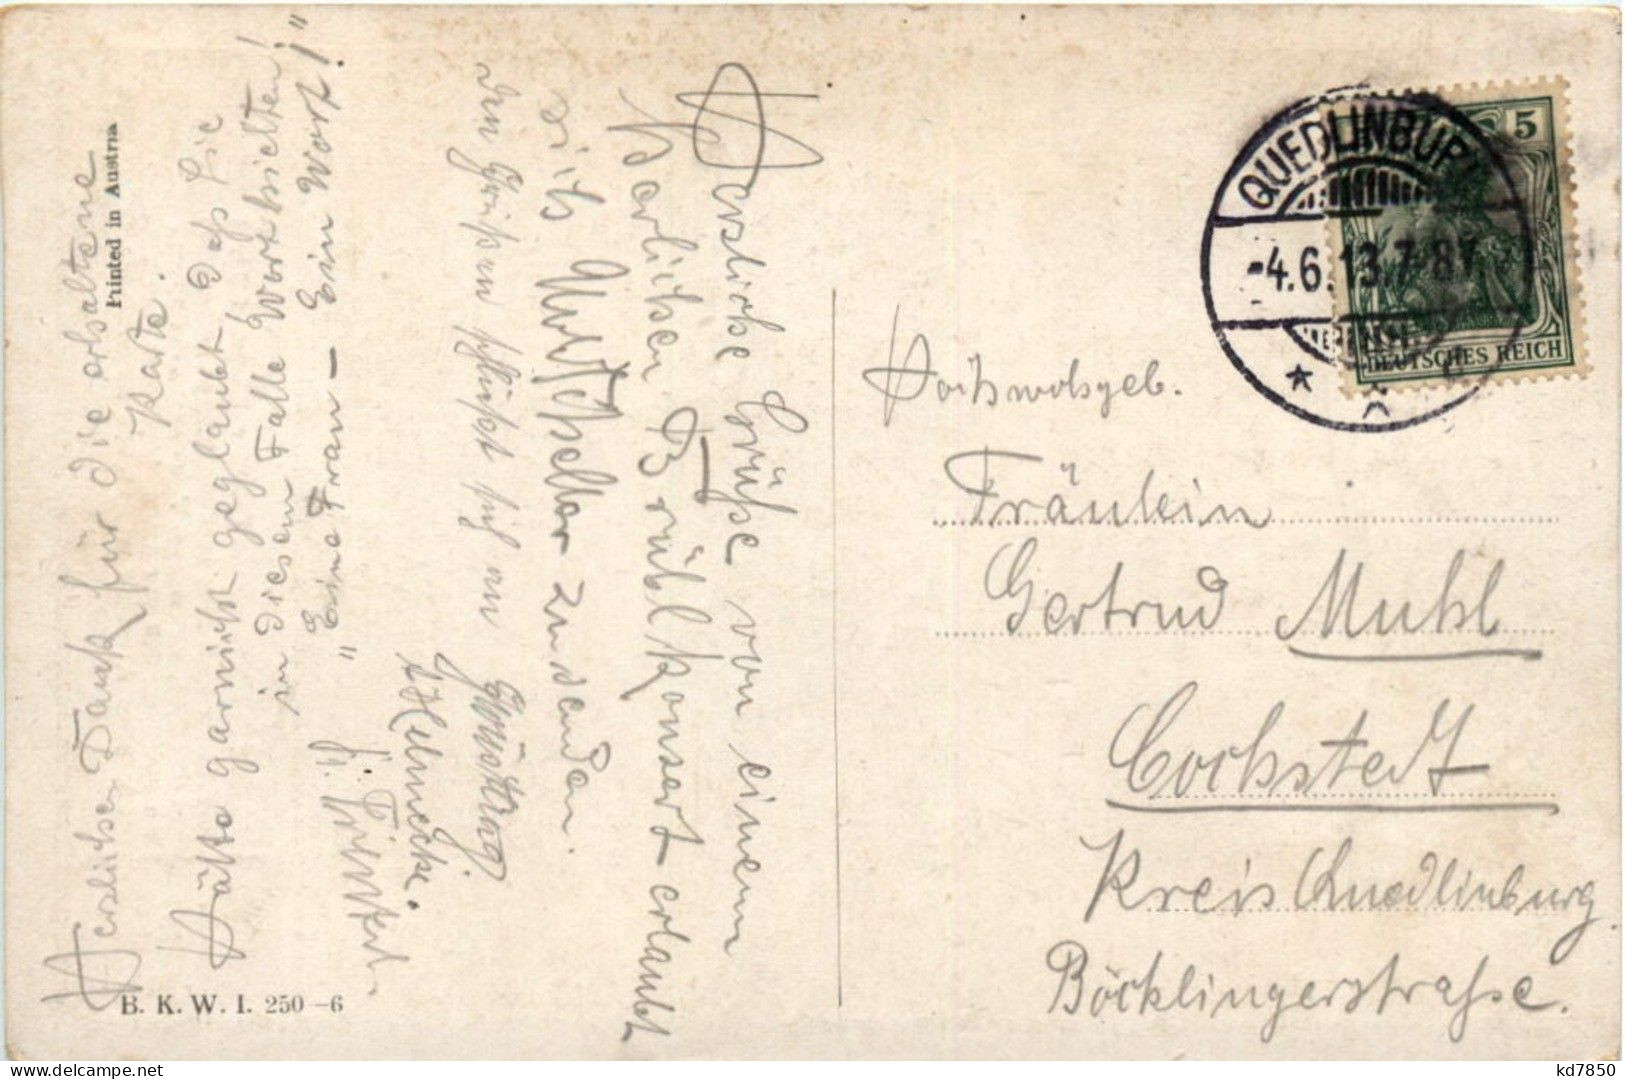 Herzliche Grüße von einem
herlichen Brühlkonzert erlaubt
sich
zu senden.
Den Grüßen schließt sich an
Helmecke.
Herzlichen Dank für die erhaltene
Karte.
Hätte garnicht geglaubt, daß Sie
in diesem Falle Wort hielten!
"Eine Frau — Ein Wort!"
Printed in Austria
B. K. W. I. 250-6
QUEDLINBURG
-4.6.13.7-8
5
DEUTSCHES REICH
Hochwohlgeb.
Fräulein
Gertrud Muhl
Cochstedt
Kreis Quedlinburg
Böcklingerstraße.
kd7850